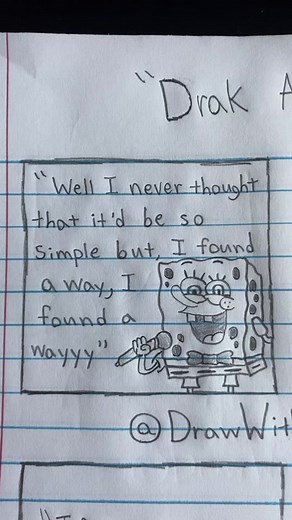 "Drak A
"Well I never thought
that it'd be so
simple but, I found
a way, I
found a
wayyy"
@DrawWit